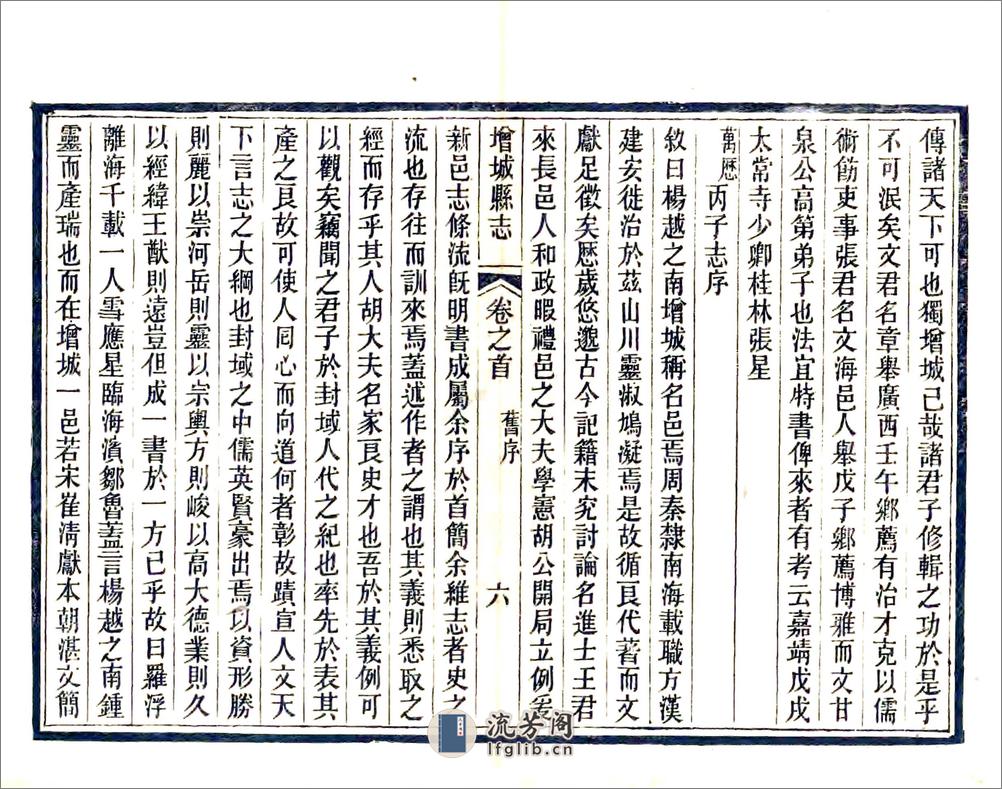 傳諸天下可也獨增城已哉諸君子修輯之功於是乎
不可泯矣文君名章舉廣西壬午鄉薦有治才克以儒
術飭吏事張君名文海邑人舉戊子鄉薦博雅而文甘
泉公高第弟子也法宜特書俾來者有考云嘉靖戊戌
太常寺少卿桂林張星
萬歷丙子志序
敘曰楊越之南增城稱名邑焉周秦隸南海載職方漢
建安徙治於茲山川靈淑鳩凝焉是故循良代著而文
獻足徵矣歷歲悠邈古今記籍未究討論名進士王君
來長邑人和政暇禮邑之大夫學憲胡公開局立例裒
增城縣志 卷之首 舊序 六
新邑志條流旣明書成屬余序於首簡余維志者史之
流也存往而訓來焉蓋述作者之謂也其義則悉取之
經而存乎其人胡大夫名家良史才也吾於其義例可
以觀矣竊聞之君子於封域人代之紀也率先於表其
產之良故可使人同心而向道何者彰故蹟宣人文天
下言志之大綱也封域之中儒英賢豪出焉以資形勝
則麗以崇河岳則靈以宗輿方則峻以高大德業則久
以經緯王猷則遠豈但成一書於一方已乎故曰羅浮
離海千載一人雪應星臨海濱鄒魯蓋言楊越之南鍾
靈而產瑞也而在增城一邑若宋崔清獻本朝湛文簡
流芳阁
lfglib.cn